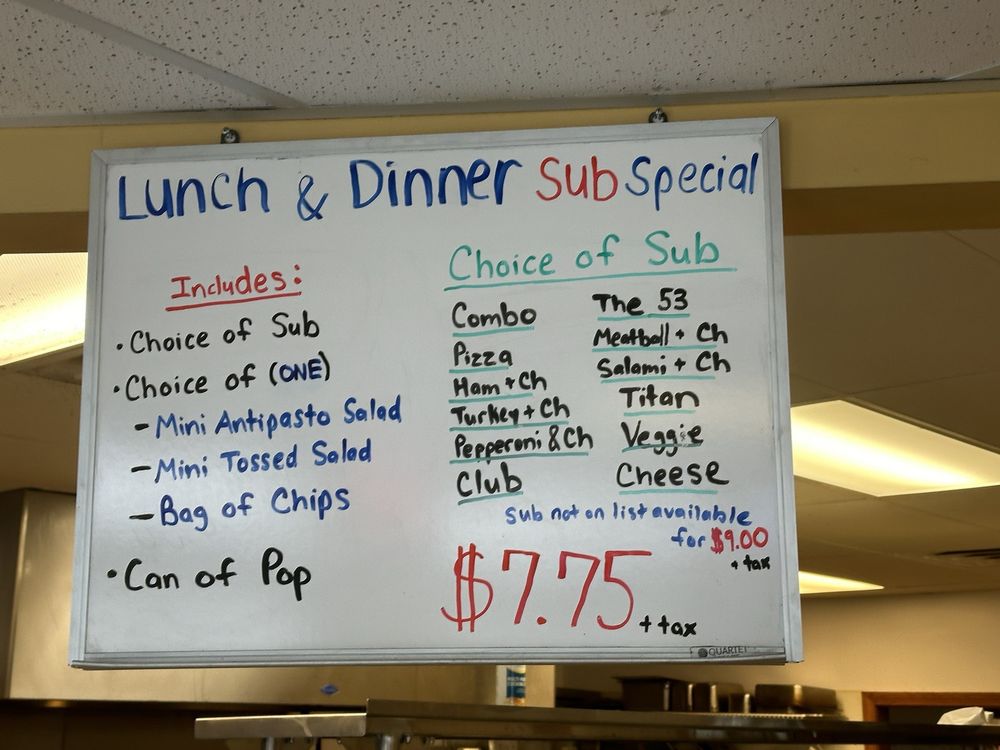 Lunch & Dinner Sub Special
Includes:
• Choice of Sub
• Choice of (ONE)
- Mini Antipasto Salad
- Mini Tossed Salad
- Bag of Chips
• Can of Pop
Choice of Sub
Combo
Pizza
Ham + Ch
Turkey + Ch
Pepperoni & Ch
Club
The 53
Meatball + Ch
Salami + Ch
Titan
Veggie
Cheese
Sub not on list available
for $9.00
+ tax
$7.75 + tax
QUARTET